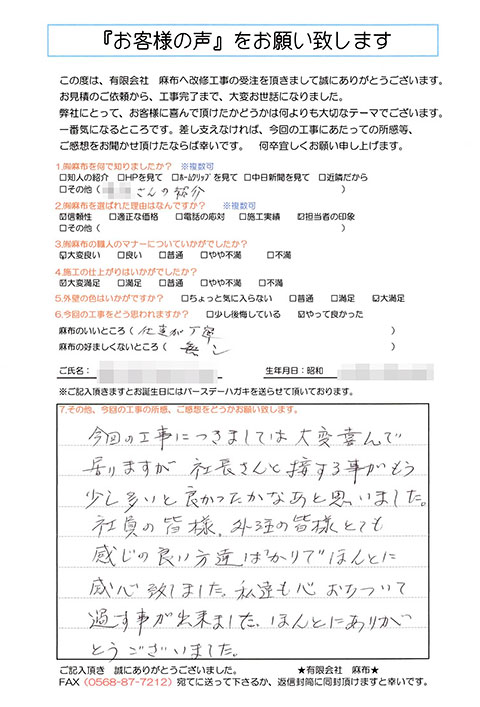 『お客様の声』をお願い致します
この度は、有限会社　麻布へ改修工事の受注を頂きまして誠にありがとうございます。
お見積のご依頼から、工事完了まで、大変お世話になりました。
弊社にとって、お客様に喜んで頂けたかどうかは何よりも大切なテーマでございます。
一番気になるところです。差し支えなければ、今回の工事にあたっての所感等、
ご感想をお聞かせ頂けたならば幸いです。　何卒宜しくお願い申し上げます。
1.㈲麻布を何で知りましたか？　※複数可
□知人の紹介　□HPを見て　□ﾎｰﾑｸﾘｯﾌﾟを見て　□中日新聞を見て　□近隣だから
□その他（　さんの紹介　）
2.㈲麻布を選ばれた理由はなんですか？　※複数可
☑信頼性　□適正な価格　□電話の応対　□施工実績　☑担当者の印象
□その他（　）
3.㈲麻布の職人のマナーについていかがでしたか？
☑大変良い　□良い　□普通　□やや不満　□不満
4.施工の仕上がりはいかがでしたか？
☑大変満足　□満足　□普通　□やや不満　□不満
5.外壁の色はいかがですか？　□ちょっと気に入らない　□普通　□満足　☑大満足
6.今回の工事をどう思われますか？　□少し後悔している　☑やって良かった
麻布のいいところ（仕事が丁寧　）
麻布の好ましくないところ（　無し　）
ご氏名：　生年月日：昭和
※ご記入頂きますとお誕生日にはバースデーハガキを送らせて頂いております。
7.その他、今回の工事の所感、ご感想をどうかお願い致します。
今回の工事につきましては大変喜んで
居りますが　社長さんと接する事がもう
少し多いと良かったかなあと思いました。
社員の皆様、外注の皆様とても
感じの良い方達ばかりでほんとに
感心致しました。私達も心おちついて
過す事が出来ました。ほんとにありが
とうございました。
ご記入頂き　誠にありがとうございました。　★有限会社　麻布★
FAX（0568-87-7212）宛てに送って下さるか、返信封筒に同封頂けますと幸いです。